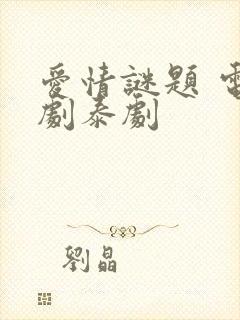 愛情謎題 電
劇泰劇
劉晶